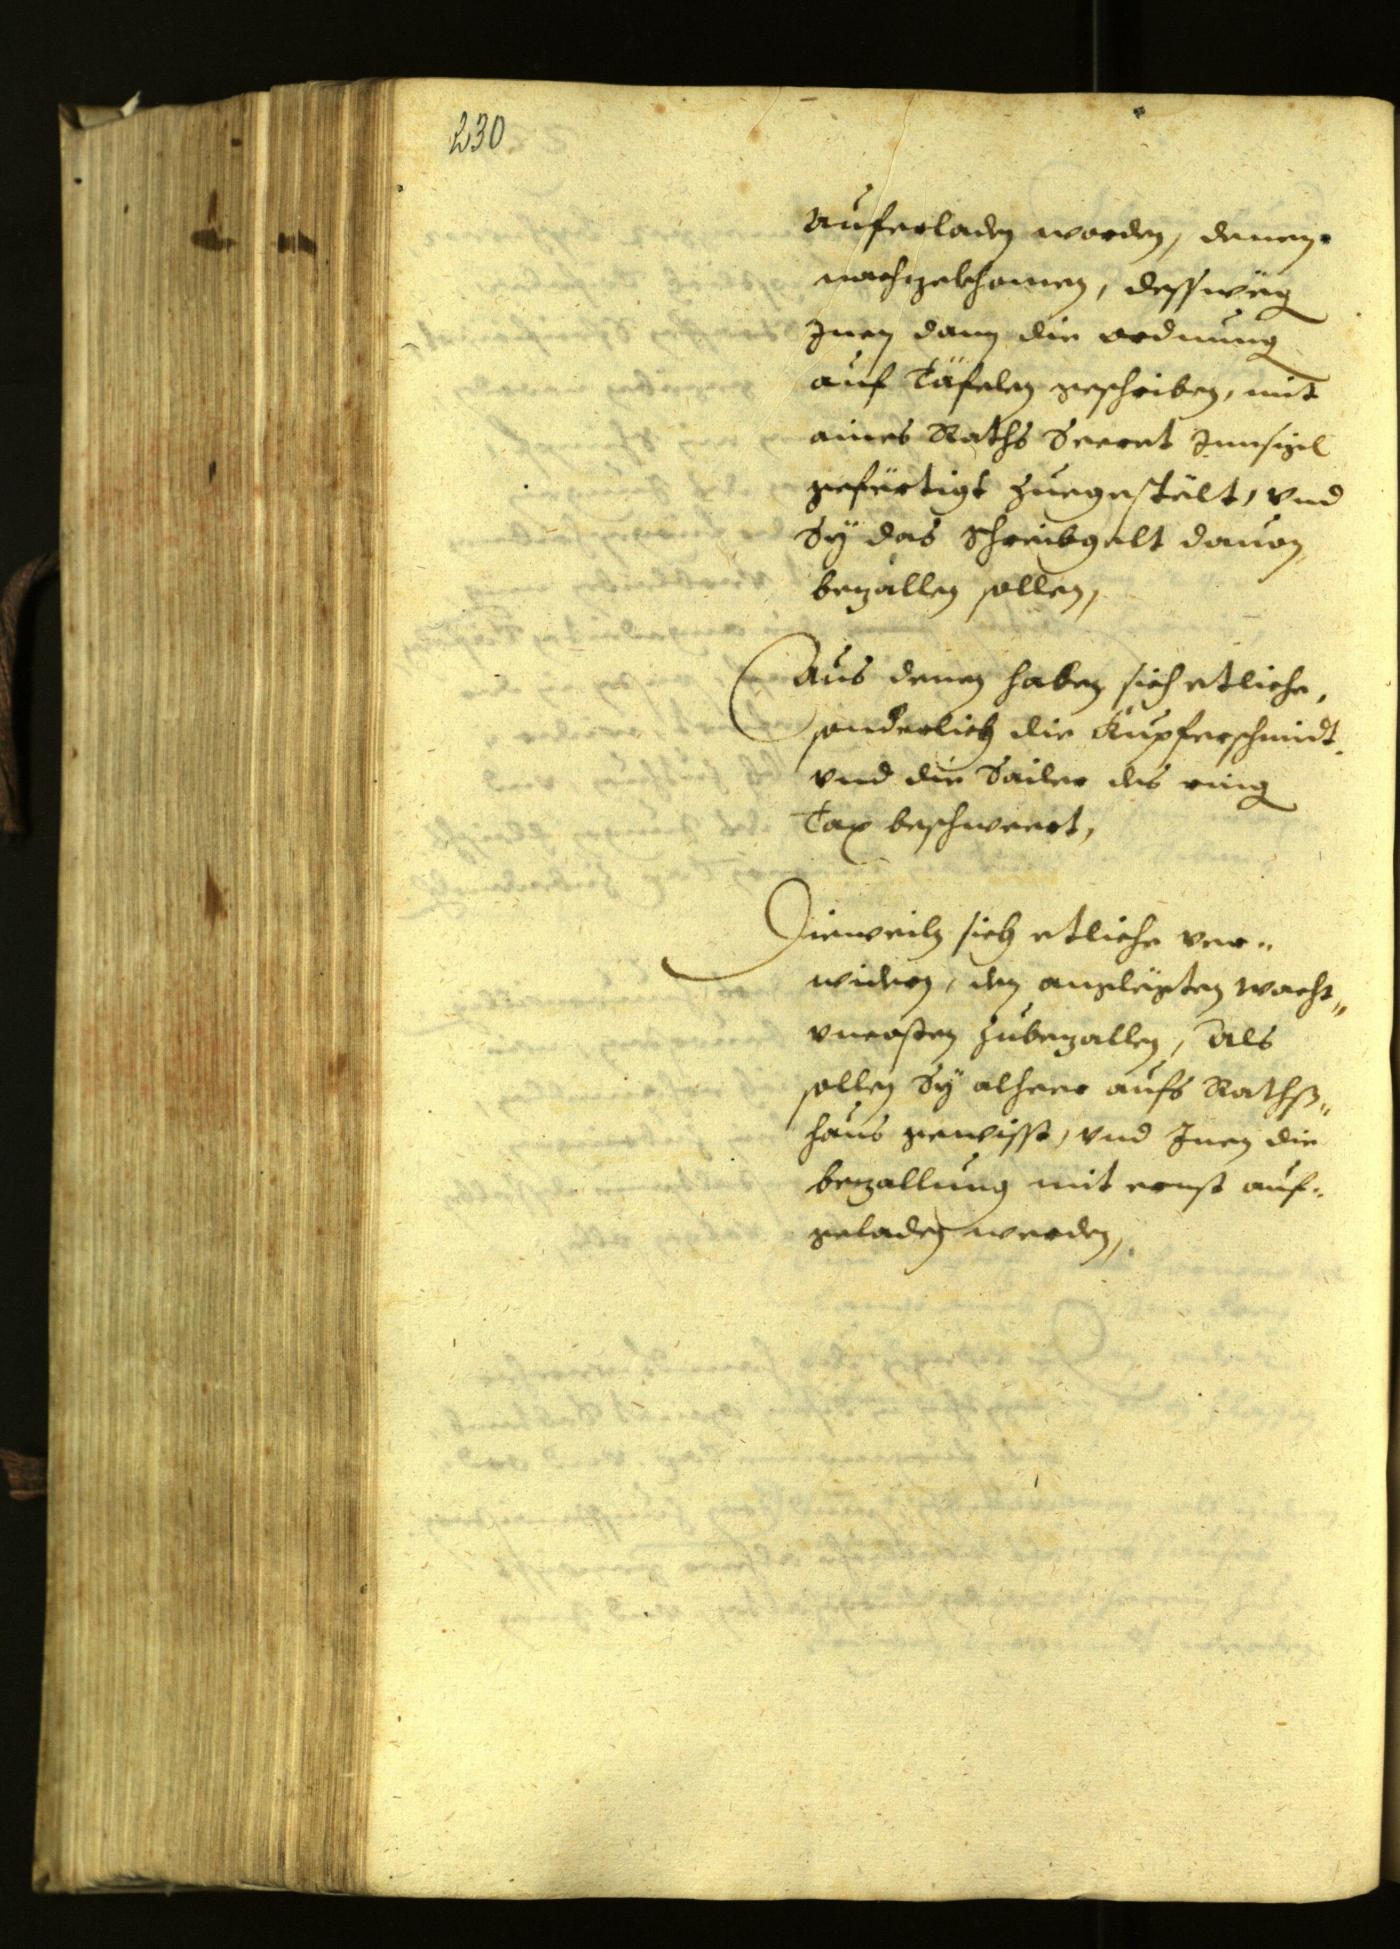 230
auferladen worden, denen
nachzekhomen, desswëg
Inen dann die ordnung
auf Täfelen geschriben, mit
aines Raths Secret Innsigl
gefërtigt zuegestëlt, vnd
Sÿ das Schreibgelt dauon
bezallen sollen,
Aus denen haben sich etliche,
sonderlich die Kupferschmidt
vnd die Sailer des ring
Tax beschweert,
Dieweiln sich etliche ver„
widern, den angelëgten wacht„
vncossten zubezallen, Als
sollen Sÿ alheer aufs Rathß„
haus gewisst, vnd Inen die
bezallung mit ernst auf„
geladen werden,